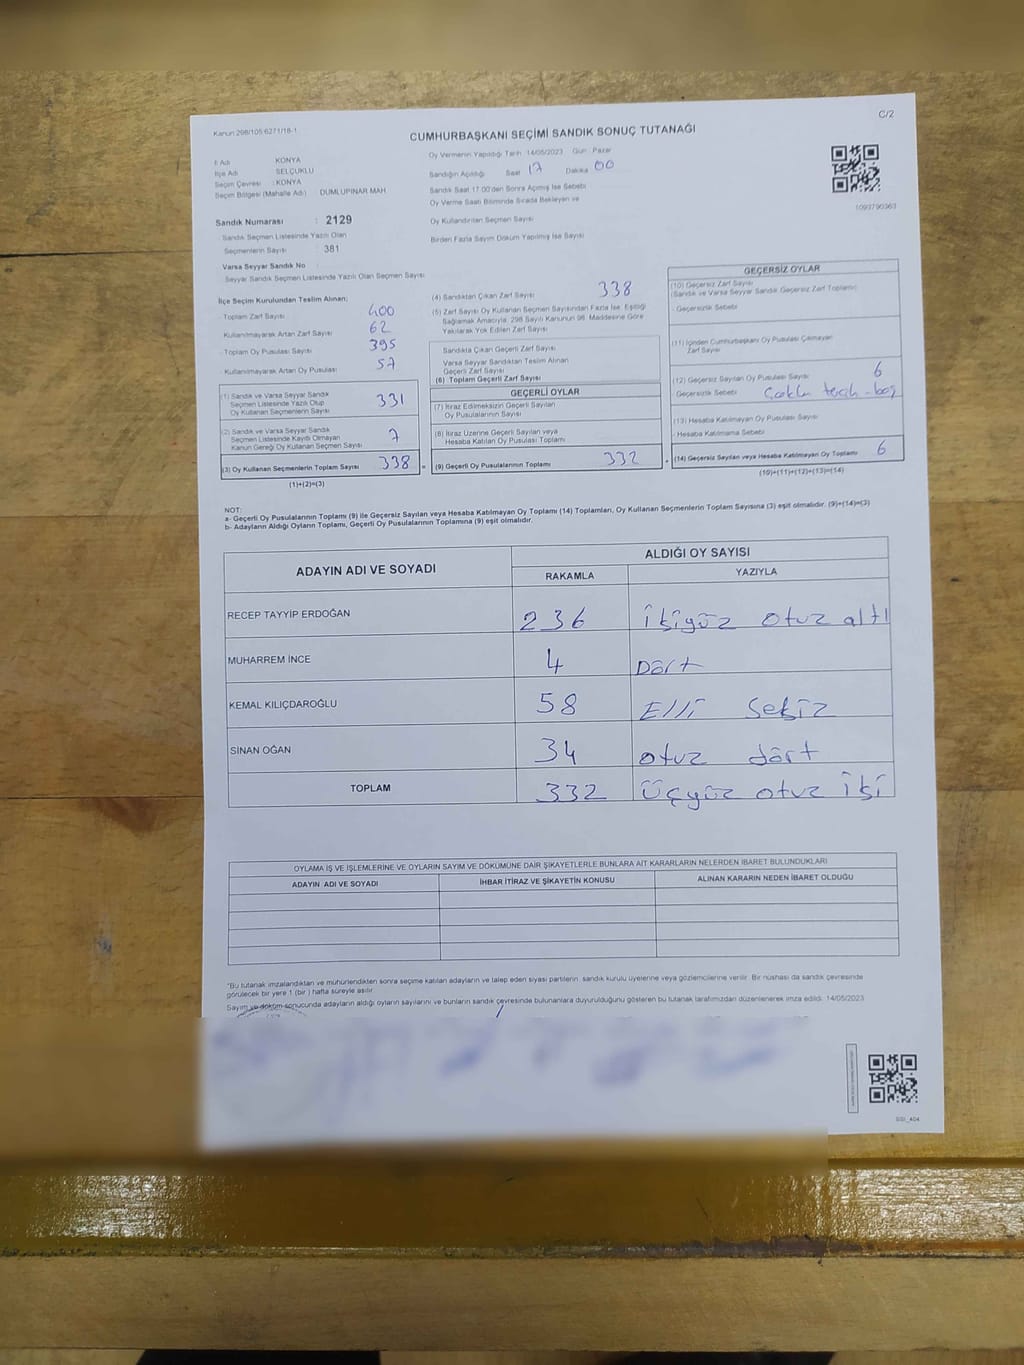 Kanun 298/105 6271/18-1
C/2
CUMHURBAŞKANI SEÇİMİ SANDIK SONUÇ TUTANAĞI
İl Adı KONYA
İlçe Adı SELÇUKLU
Seçim Çevresi : KONYA
Seçim Bölgesi (Mahalle Adı) : DUMLUPINAR MAH
Oy Vermenin Yapıldığı Tarih : 14/05/2023 Gün : Pazar
Sandığın Açıldığı Saat 17 Dakika 00
Sandık Saat 17.00'den Sonra Açımış İse Sebebi
Oy Verme Saati Bitiminde Sırada Bekleyen ve
Oy Kullandırılan Seçmen Sayısı
Birden Fazla Sayım Döküm Yapılmış İse Sayısı
1093790363
Sandık Numarası : 2129
Sandık Seçmen Listesinde Yazılı Olan
Seçmenlerin Sayısı : 381
Varsa Seyyar Sandık No
Seyyar Sandık Seçmen Listesinde Yazılı Olan Seçmen Sayısı
İlçe Seçim Kurulundan Teslim Alınan;
Toplam Zarf Sayısı 400
Kullanılmayarak Artan Zarf Sayısı 62
Toplam Oy Pusulası Sayısı 395
Kullanılmayarak Artan Oy Pusulası 57
(1) Sandık ve Varsa Seyyar Sandık
Seçmen Listesinde Yazılı Olup
Oy Kullanan Seçmenlerin Sayısı 331
(2) Sandık ve Varsa Seyyar Sandık
Seçmen Listesinde Kaydı Olmayan
Kanun Gereği Oy Kullanan Seçmen Sayısı 7
(3) Oy Kullanan Seçmenlerin Toplam Sayısı 338 =
(1)+(2)=(3)
(4) Sandıktan Çıkan Zarf Sayısı 338
(5) Zarf Sayısı Oy Kullanan Seçmen Sayısından Fazla İse, Eşitliği
Sağlamak Amacıyla, 298 Sayılı Kanunun 98. Maddesine Göre
Yakılarak Yok Edilen Zarf Sayısı
Sandıkta Çıkan Geçerli Zarf Sayısı
Varsa Seyyar Sandıktan Teslim Alınan
Geçerli Zarf Sayısı
(6) Toplam Geçerli Zarf Sayısı
GEÇERLİ OYLAR
(7) İtiraz Edilmeksizin Geçerli Sayılan
Oy Pusulalarının Sayısı
(8) İtiraz Üzerine Geçerli Sayılan veya
Hesaba Katılan Oy Pusulası Toplamı
(9) Geçerli Oy Pusulalarının Toplamı 332 +
GEÇERSİZ OYLAR
(10) Geçersiz Zarf Sayısı
(Sandık ve Varsa Seyyar Sandık Geçersiz Zarf Toplamı)
Geçersizlik Sebebi
(11) İçinden Cumhurbaşkanı Oy Pusulası Çıkmayan
Zarf Sayısı
(12) Geçersiz Sayılan Oy Pusulası Sayısı 6
Geçersizlik Sebebi Çoklu tercih - boş
(13) Hesaba Katılmayan Oy Pusulası Sayısı
- Hesaba Katılmama Sebebi
(14) Geçersiz Sayılan veya Hesaba Katılmayan Oy Toplamı 6
(10)+(11)+(12)+(13)=(14)
NOT:
a- Geçerli Oy Pusulalarının Toplamı (9) ile Geçersiz Sayılan veya Hesaba Katılmayan Oy Toplamı (14) Toplamları, Oy Kullanan Seçmenlerin Toplam Sayısına (3) eşit olmalıdır. (9)+(14)=(3)
b- Adayların Aldığı Oyların Toplamı, Geçerli Oy Pusulalarının Toplamına (9) eşit olmalıdır.
ADAYIN ADI VE SOYADI
ALDIĞI OY SAYISI
RAKAMLA YAZIYLA
RECEP TAYYİP ERDOĞAN 236 ikiyüz otuz altı
MUHARREM İNCE 4 Dört
KEMAL KILIÇDAROĞLU 58 Elli Sekiz
SİNAN OĞAN 34 otuz dört
TOPLAM 332 üçyüz otuz iki
OYLAMA İŞ VE İŞLEMLERİNE VE OYLARIN SAYIM VE DÖKÜMÜNE DAİR ŞİKAYETLERLE BUNLARA AİT KARARLARIN NELERDEN İBARET BULUNDUKLARI
ADAYIN ADI VE SOYADI İHBAR İTİRAZ VE ŞİKAYETİN KONUSU ALINAN KARARIN NEDEN İBARET OLDUĞU
*Bu tutanak imzalandıktan ve mühürlendikten sonra seçime katılan adayların ve talep eden siyasi partilerin sandık kurulu üyelerine veya gözlemcilerine verilir. Bir nüshası da sandık çevresinde
görülecek bir yere 1 (bir) hafta süreyle asılır.
Sayım ve döküm sonucunda adayların aldığı oyların sayılarını ve bunların sandık çevresinde bulunanlara duyurulduğunu gösteren bu tutanak tarafımızdan düzenlenerek imza edildi. 14/05/2023
SSI_404